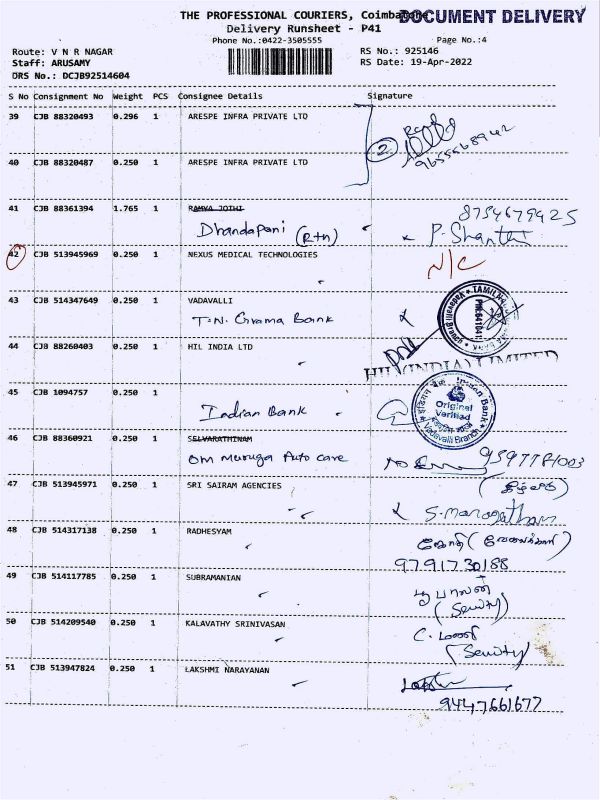 THE PROFESSIONAL COURIERS, Coimbatore
DOCUMENT DELIVERY
Delivery Runsheet - P41
Phone No.:0422-3505555 Page No.:4
Route: V N R NAGAR RS No.: 925146
Staff: ARUSAMY RS Date: 19-Apr-2022
DRS No.: DCJB92514604
S No Consignment No Weight PCS Consignee Details Signature
39 CJB 88320493 0.296 1 ARESPE INFRA PRIVATE LTD
2
9655568942
40 CJB 88320487 0.250 1 ARESPE INFRA PRIVATE LTD
41 CJB 88361394 1.765 1 RAMYA JOTHI 8754679425
Dhandapani (Rtn) P. Shanthi
42 CJB 513945969 0.250 1 NEXUS MEDICAL TECHNOLOGIES N/C
43 CJB 514347649 0.250 1 VADAVALLI
T.N. Grama Bank
44 CJB 88260403 0.250 1 HIL INDIA LTD
HIL (INDIA) LIMITED
45 CJB 1094757 0.250 1
Indian Bank
Indian Bank
Original
Verified
Vadavalli Branch
46 CJB 88360921 0.250 1 SELVARATHINAM
Om Muruga Auto care 9597781003
47 CJB 513945971 0.250 1 SRI SAIRAM AGENCIES
S. Maragatham
48 CJB 514317138 0.250 1 RADHESYAM ஜோதி (வேலைக்காரி)
9791730188
49 CJB 514117785 0.250 1 SUBRAMANIAN
(Seurity)
50 CJB 514209540 0.250 1 KALAVATHY SRINIVASAN
(Seurity)
51 CJB 513947824 0.250 1 LAKSHMI NARAYANAN
9447661677